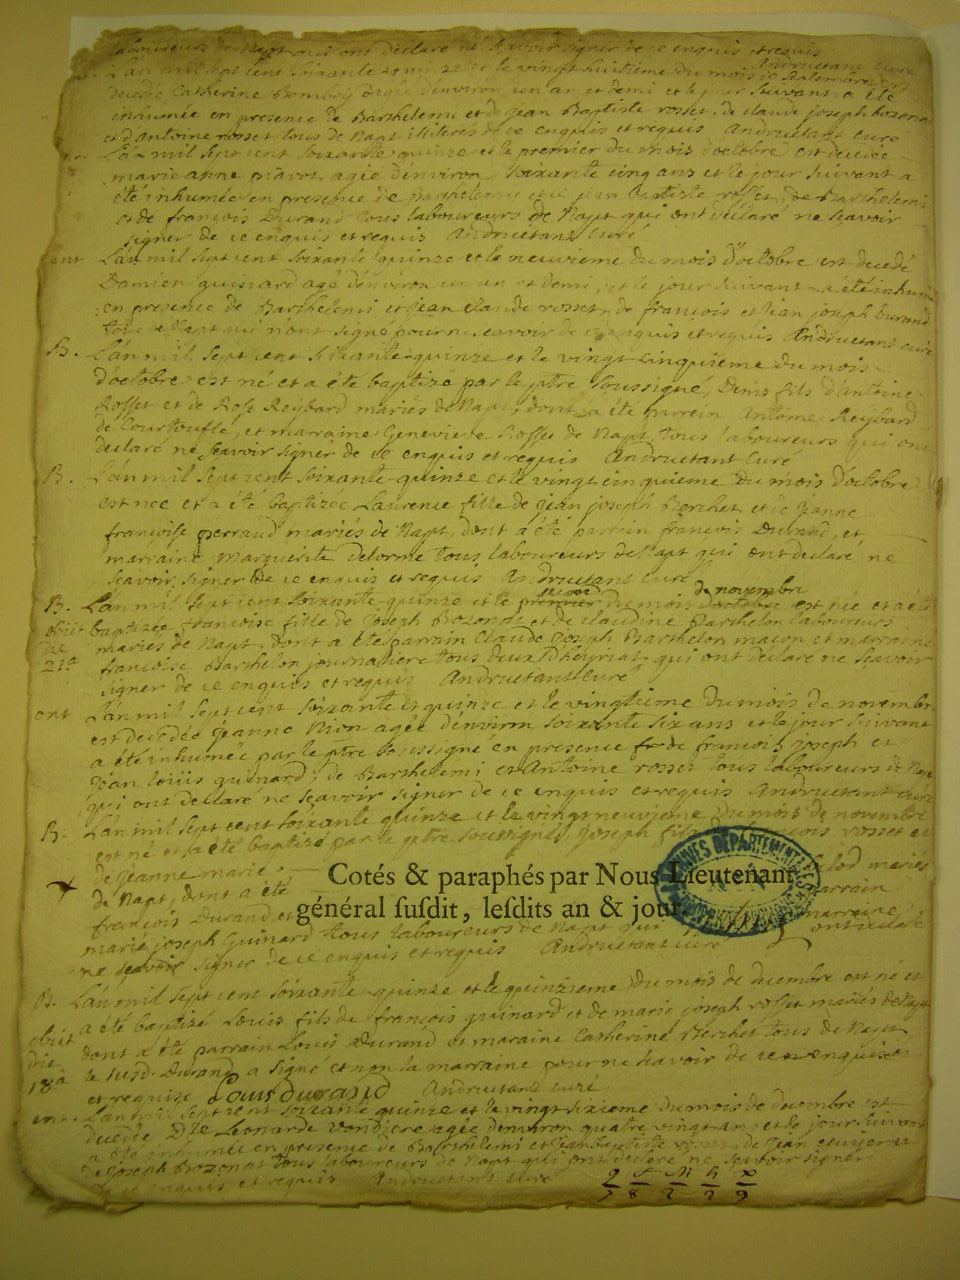 laboureurs de Napt qui ont declaré ne sçavoir signer de ce enquis et requis
Andruetant curé
L'an mil sept cent soixante quinze et le vingt huitieme du mois de septembre est
decedée Catherine agée d'environ un an et demi et le jour suivant a été
inhumée en presence de Barthelemi et de jean Baptiste rosset, de claude joseph bozona
et d'antoine rosset tous de Napt illiteres de ce enquis et requis Andruetant curé
L'an mil sept cent soixante quinze et le premier du mois d'octobre est decedée
marie anne agée d'environ soixante cinq ans et le jour suivant a
été inhumée en presence de Barthelemi et de jean Baptiste rosset, de Barthelemi
et de françois Durand tous laboureurs de Napt qui ont declaré ne sçavoir
signer de ce enquis et requis Andruetant curé
ent L'an mil sept cent soixante quinze et le neuvieme du mois d'octobre est decedé
Damien guinard agé d'environ un an et demi, et le jour suivant a été inhumé
en presence de Barthelemi et jean claude rosset, de françois et jean joseph Durand
tous de Napt qui n'ont signé pour ne sçavoir de ce enquis et requis Andruetant curé
B. L'an mil sept cent soixante-quinze et le vingt cinquieme du mois
d'octobre est né et a été baptizé par le ptre soussigné, Denis fils d'antoine
Rosset et de Rose Reybard mariés de Napt, dont a été parrein Antoine Reybard
de Courtoufle, et marraine Genevieve Rosset de Napt tous laboureurs qui ont
declaré ne sçavoir signer de ce enquis et requis Andruetant curé
B. L'an mil sept cent soixante-quinze et le vingt cinquieme du mois d'octobre
est née et a été baptizée Laurence fille de jean joseph Berchet et de jeanne
françoise perraud mariés de Napt, dont a été parrain françois Durand, et
marraine Marguerite delorme tous laboureurs de Napt qui ont declaré ne
sçavoir signer de ce enquis et requis Andruetant curé
second de novembre
B. L'an mil sept cent soixante-quinze et le premier du mois d'octobre est née et a été
obiit baptizée françoise fille de joseph Bozonat et de claudine Barthelon laboureurs
die mariés de Napt, dont a été parrain Claude joseph Barthelon maçon et marraine
21a françoise Barthelon journaliere tous deux d'heyriat qui ont declaré ne sçavoir
signer de ce enquis et requis Andruetant curé
ent L'an mil sept cent soixante et quinze et le vingtieme du mois de novembre
est decedée jeanne Nion agée d'environ soixante six ans et le jour suivant
a été inhumée par le ptre soussigné en presence de françois joseph et
jean loüis guinard, de Barthelemi et Antoine rosset tous laboureurs de Napt
qui ont declaré ne sçavoir signer de ce enquis et requis Andruetant curé
B. L'an mil sept cent soixante quinze et le vingt neuvieme du mois de novembre
est né et a été baptizé par le ptre soussigné, joseph fils rosset et
de jeanne marie mariés
Cotés & paraphés par Nous Lieutenant
de Napt, dont a été parrain
général susdit, lesdits an & jour.
françois Durand et marraine
marie joseph Guinard tous laboureurs de Napt qui ont declaré
ne sçavoir signer de ce enquis et requis Andruetant curé
B. L'an mil sept cent soixante-quinze et le quinzieme du mois de decembre est né et
obiit a été baptizé Loüis fils de françois guinard et de marie joseph rosset mariés de Napt
die dont a été parrain Louis Durand et maraine Catherine Berchet tous de Napt,
18a le susd. Durand a signé et non la marraine pour ne sçavoir de ce enquise
et requise Louis durand Andruetant curé
ent L'an mil sept cent soixante quinze et le vingt sixieme du mois de decembre est
decedée Dlle Leonarde agée d'environ quatre vingt ans et le jour suivant
a été inhumée en presence de Barthelemi et jean baptiste rosset de jean
de joseph Bozonat tous laboureurs de Napt qui ont declaré ne sçavoir signer
de ce enquis et requis Andruetant curé